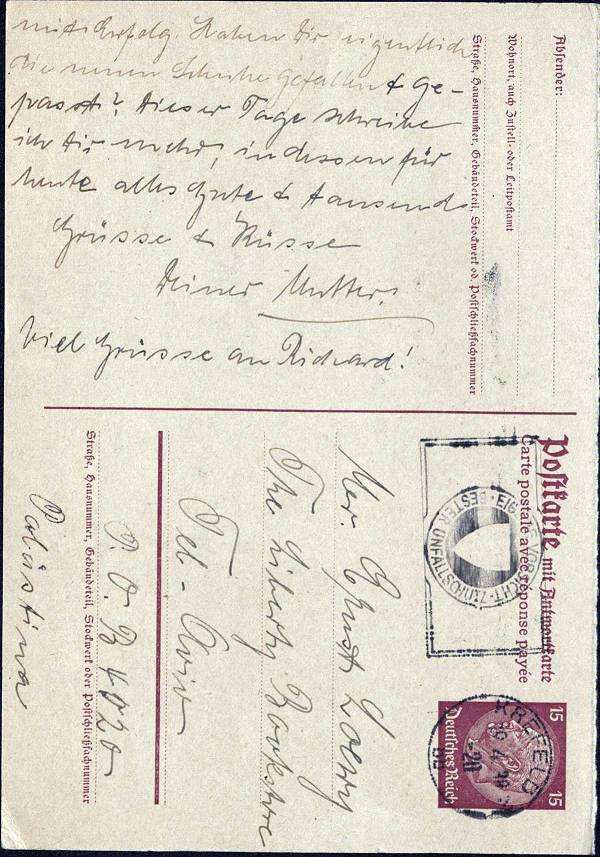 mit Erfolg. Haben Dir eigentlich
die neuen Schuhe gefallen & ge-
passt? Dieser Tage schreibe
ich Dir mehr, indessen für
heute alles Gute & tausend
Grüsse & Küsse
Deiner Mutter.
Viel Grüsse an Richard!
Absender:
Wohnort, auch Zustell- oder Leitpostamt
Straße, Hausnummer, Gebäudeteil, Stockwerk od. Postschließfachnummer
Postkarte mit Antwortkarte
Carte postale avec réponse payée
EIGENE VORSICHT - BESTER UNFALLSCHUTZ
15 15
Deutsches Reich
KREFELD
Mr. Ernst Loewy
The Liberty Bookstore
Tel-Aviv
P.O.B 4020
Palästina
Straße, Hausnummer, Gebäudeteil, Stockwerk oder Postschließfachnummer